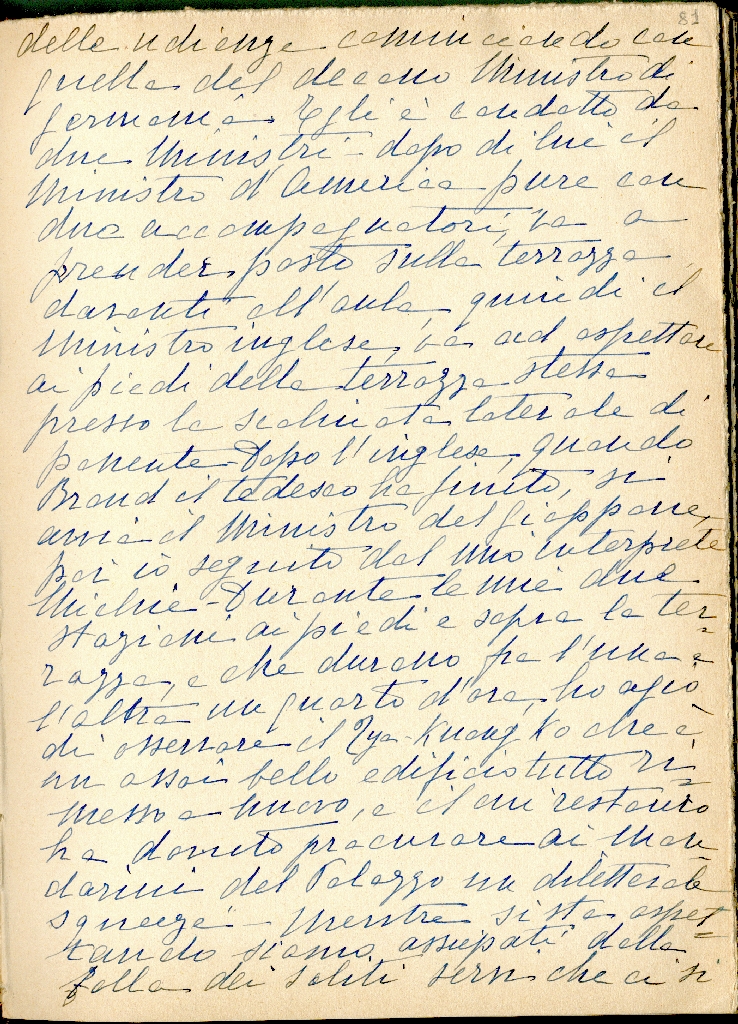 81
delle udienze cominciando con
quella del decano Ministro di
Germania. Egli è condotto da
due Ministri - dopo di lui il
Ministro d'America pure con
due accompagnatori, va a
prender posto sulla terrazza
davanti all'aula, quindi il
Ministro inglese, va ad aspettare
ai piedi della terrazza stessa
presso la scalinata laterale di
ponente. Dopo l'inglese, quando
Brand il tedesco ha finito, si
avvia il Ministro del Giappone,
poi io seguito dal mio interprete
Michie - Durante le mie due
stazioni ai piedi e sopra la ter-
razza, e che durano fra l'una e
l'altra un quarto d'ora, ho agio
di osservare il Tzya-Kuang Ko che è
un assai bello edificio tutto ri-
messo a nuovo, e il cui restauro
ha dovuto procurare ai Man-
darini del Palazzo un dilettevole
squeeze - Mentre si sta aspet-
tando siamo assiepati dalla
folla dei soliti servi che ci si